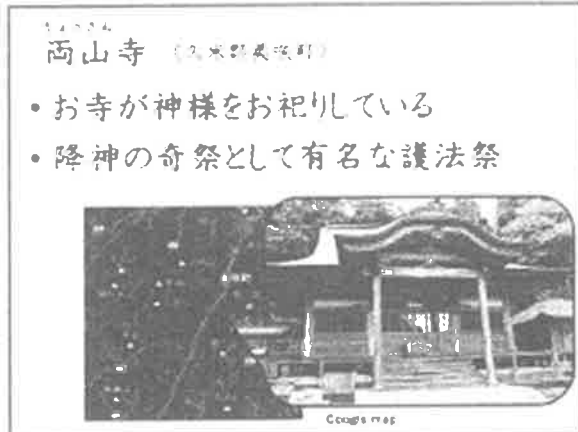 両山寺 (久米郡美咲町)
• お寺が神様をお祀りしている
• 降神の奇祭として有名な護法祭
Google map